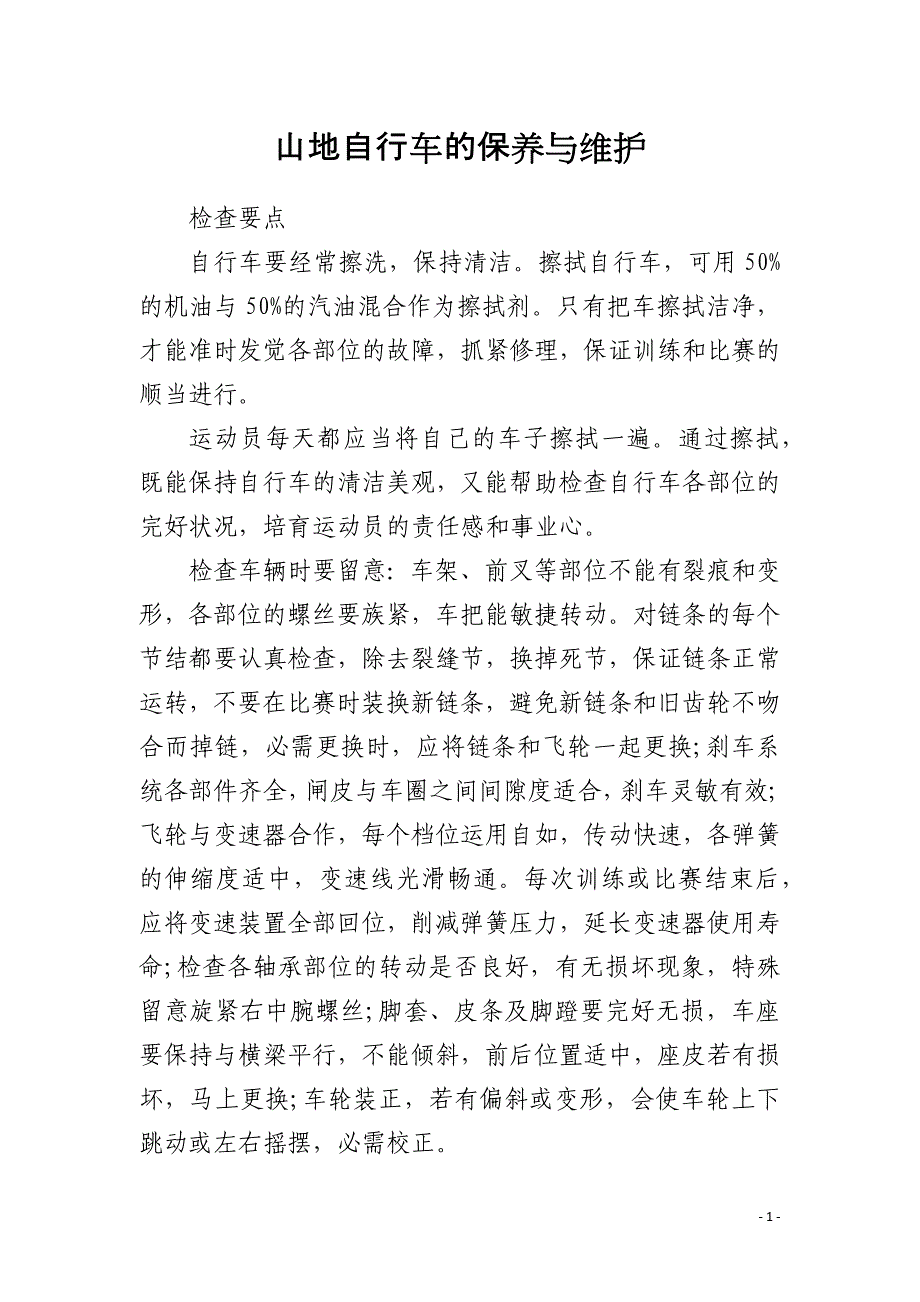 山地自行车的保养与维护
检查要点
自行车要经常擦洗，保持清洁。擦拭自行车，可用 50%
的机油与 50%的汽油混合作为擦拭剂。只有把车擦拭洁净，
才能准时发觉各部位的故障，抓紧修理，保证训练和比赛的
顺当进行。
运动员每天都应当将自己的车子擦拭一遍。通过擦拭，
既能保持自行车的清洁美观，又能帮助检查自行车各部位的
完好状况，培育运动员的责任感和事业心。
检查车辆时要留意：车架、前叉等部位不能有裂痕和变
形，各部位的螺丝要族紧，车把能敏捷转动。对链条的每个
节结都要认真检查，除去裂缝节，换掉死节，保证链条正常
运转，不要在比赛时装换新链条，避免新链条和旧齿轮不吻
合而掉链，必需更换时，应将链条和飞轮一起更换;刹车系
统各部件齐全，闸皮与车圈之间间隙度适合，刹车灵敏有效;
飞轮与变速器合作，每个档位运用自如，传动快速，各弹簧
的伸缩度适中，变速线光滑畅通。每次训练或比赛结束后，
应将变速装置全部回位，削减弹簧压力，延长变速器使用寿
命;检查各轴承部位的转动是否良好，有无损坏现象，特殊
留意旋紧右中腕螺丝;脚套、皮条及脚蹬要完好无损，车座
要保持与横梁平行，不能倾斜，前后位置适中，座皮若有损
坏，马上更换;车轮装正，若有偏斜或变形，会使车轮上下
跳动或左右摇摆，必需校正。
- 1 -